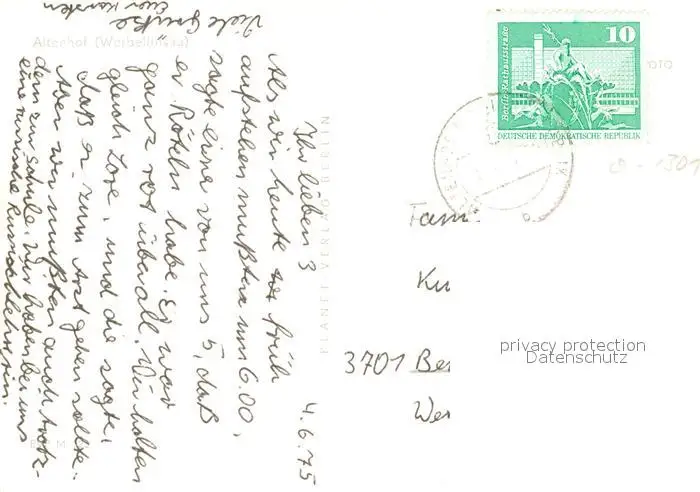 4.6.75
Ihr lieben 3
Als wir heute früh
aufstehen mußten um 6.00,
sagte einer von uns 5, daß
er Röteln habe. Er war
ganz rot überall. Wir holten
gleich Lore, und die sagte,
daß er zum Arzt gehen sollte.
Aber wir mußten auch trotz-
dem zur Schule. Wir haben bei uns
eine russische
Viele Grüße
Euer Karsten
Altenhof (Werbellinsee)
PLANET VERLAG BERLIN
Berlin, Rathausstraße
10
DEUTSCHE DEMOKRATISCHE REPUBLIK
Fam
Ku
3701 Ber
Wer
privacy protection
Datenschutz